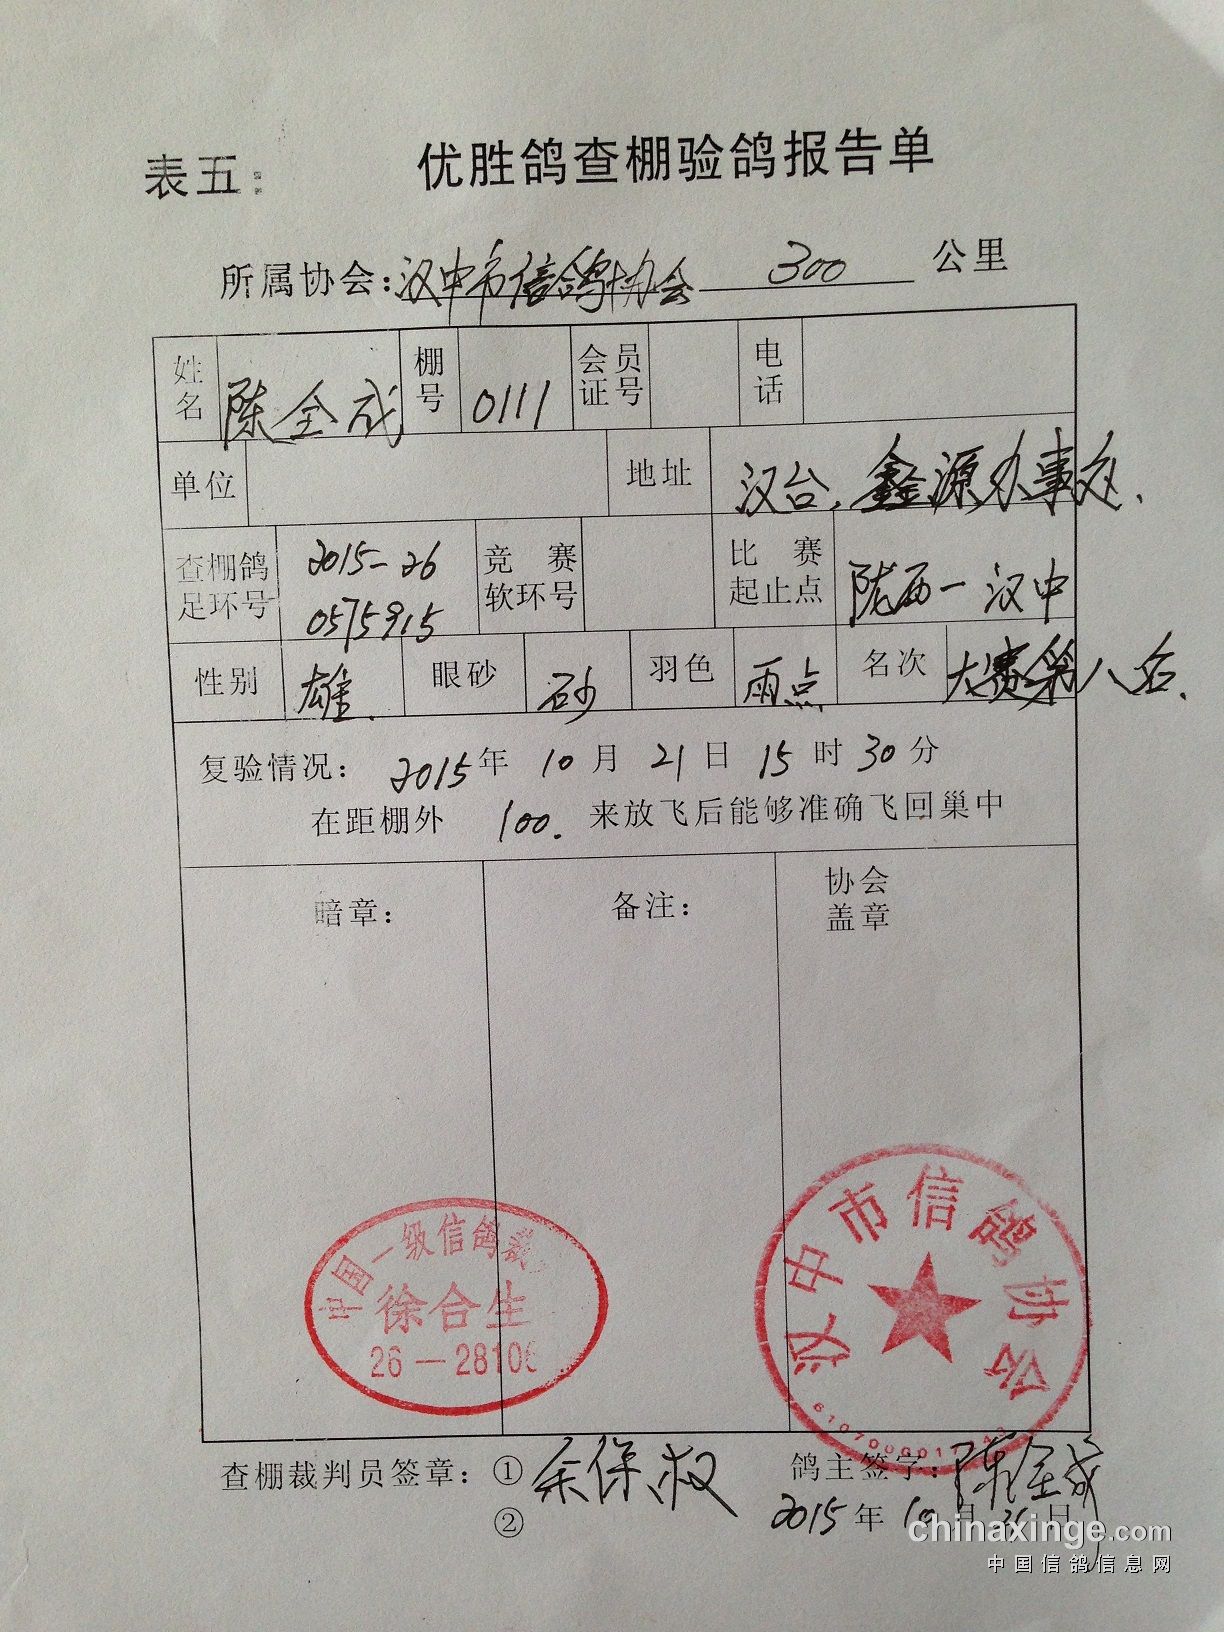 表五： 优胜鸽查棚验鸽报告单
所属协会：汉中市信鸽协会 300 公里
姓名 陈全成 棚号 0111 会员证号 电话
单位 地址 汉台，鑫源办事处．
查棚鸽足环号 2015-26 0575915 竞赛软环号 比赛起止点 陇西-汉中
性别 雄． 眼砂 砂 羽色 雨点 名次 大赛第八名．
复验情况： 2015年 10月 21日 15时 30分
在距棚外 100．来放飞后能够准确飞回巢中
暗章： 备注： 协会盖章
中国一级信鸽裁
徐合生
26-28106
汉中市信鸽协会
查棚裁判员签章：① 余保权 鸽主签字：陈全成
② 2015年 10月 21日
chinaxinge.com
中国信鸽信息网